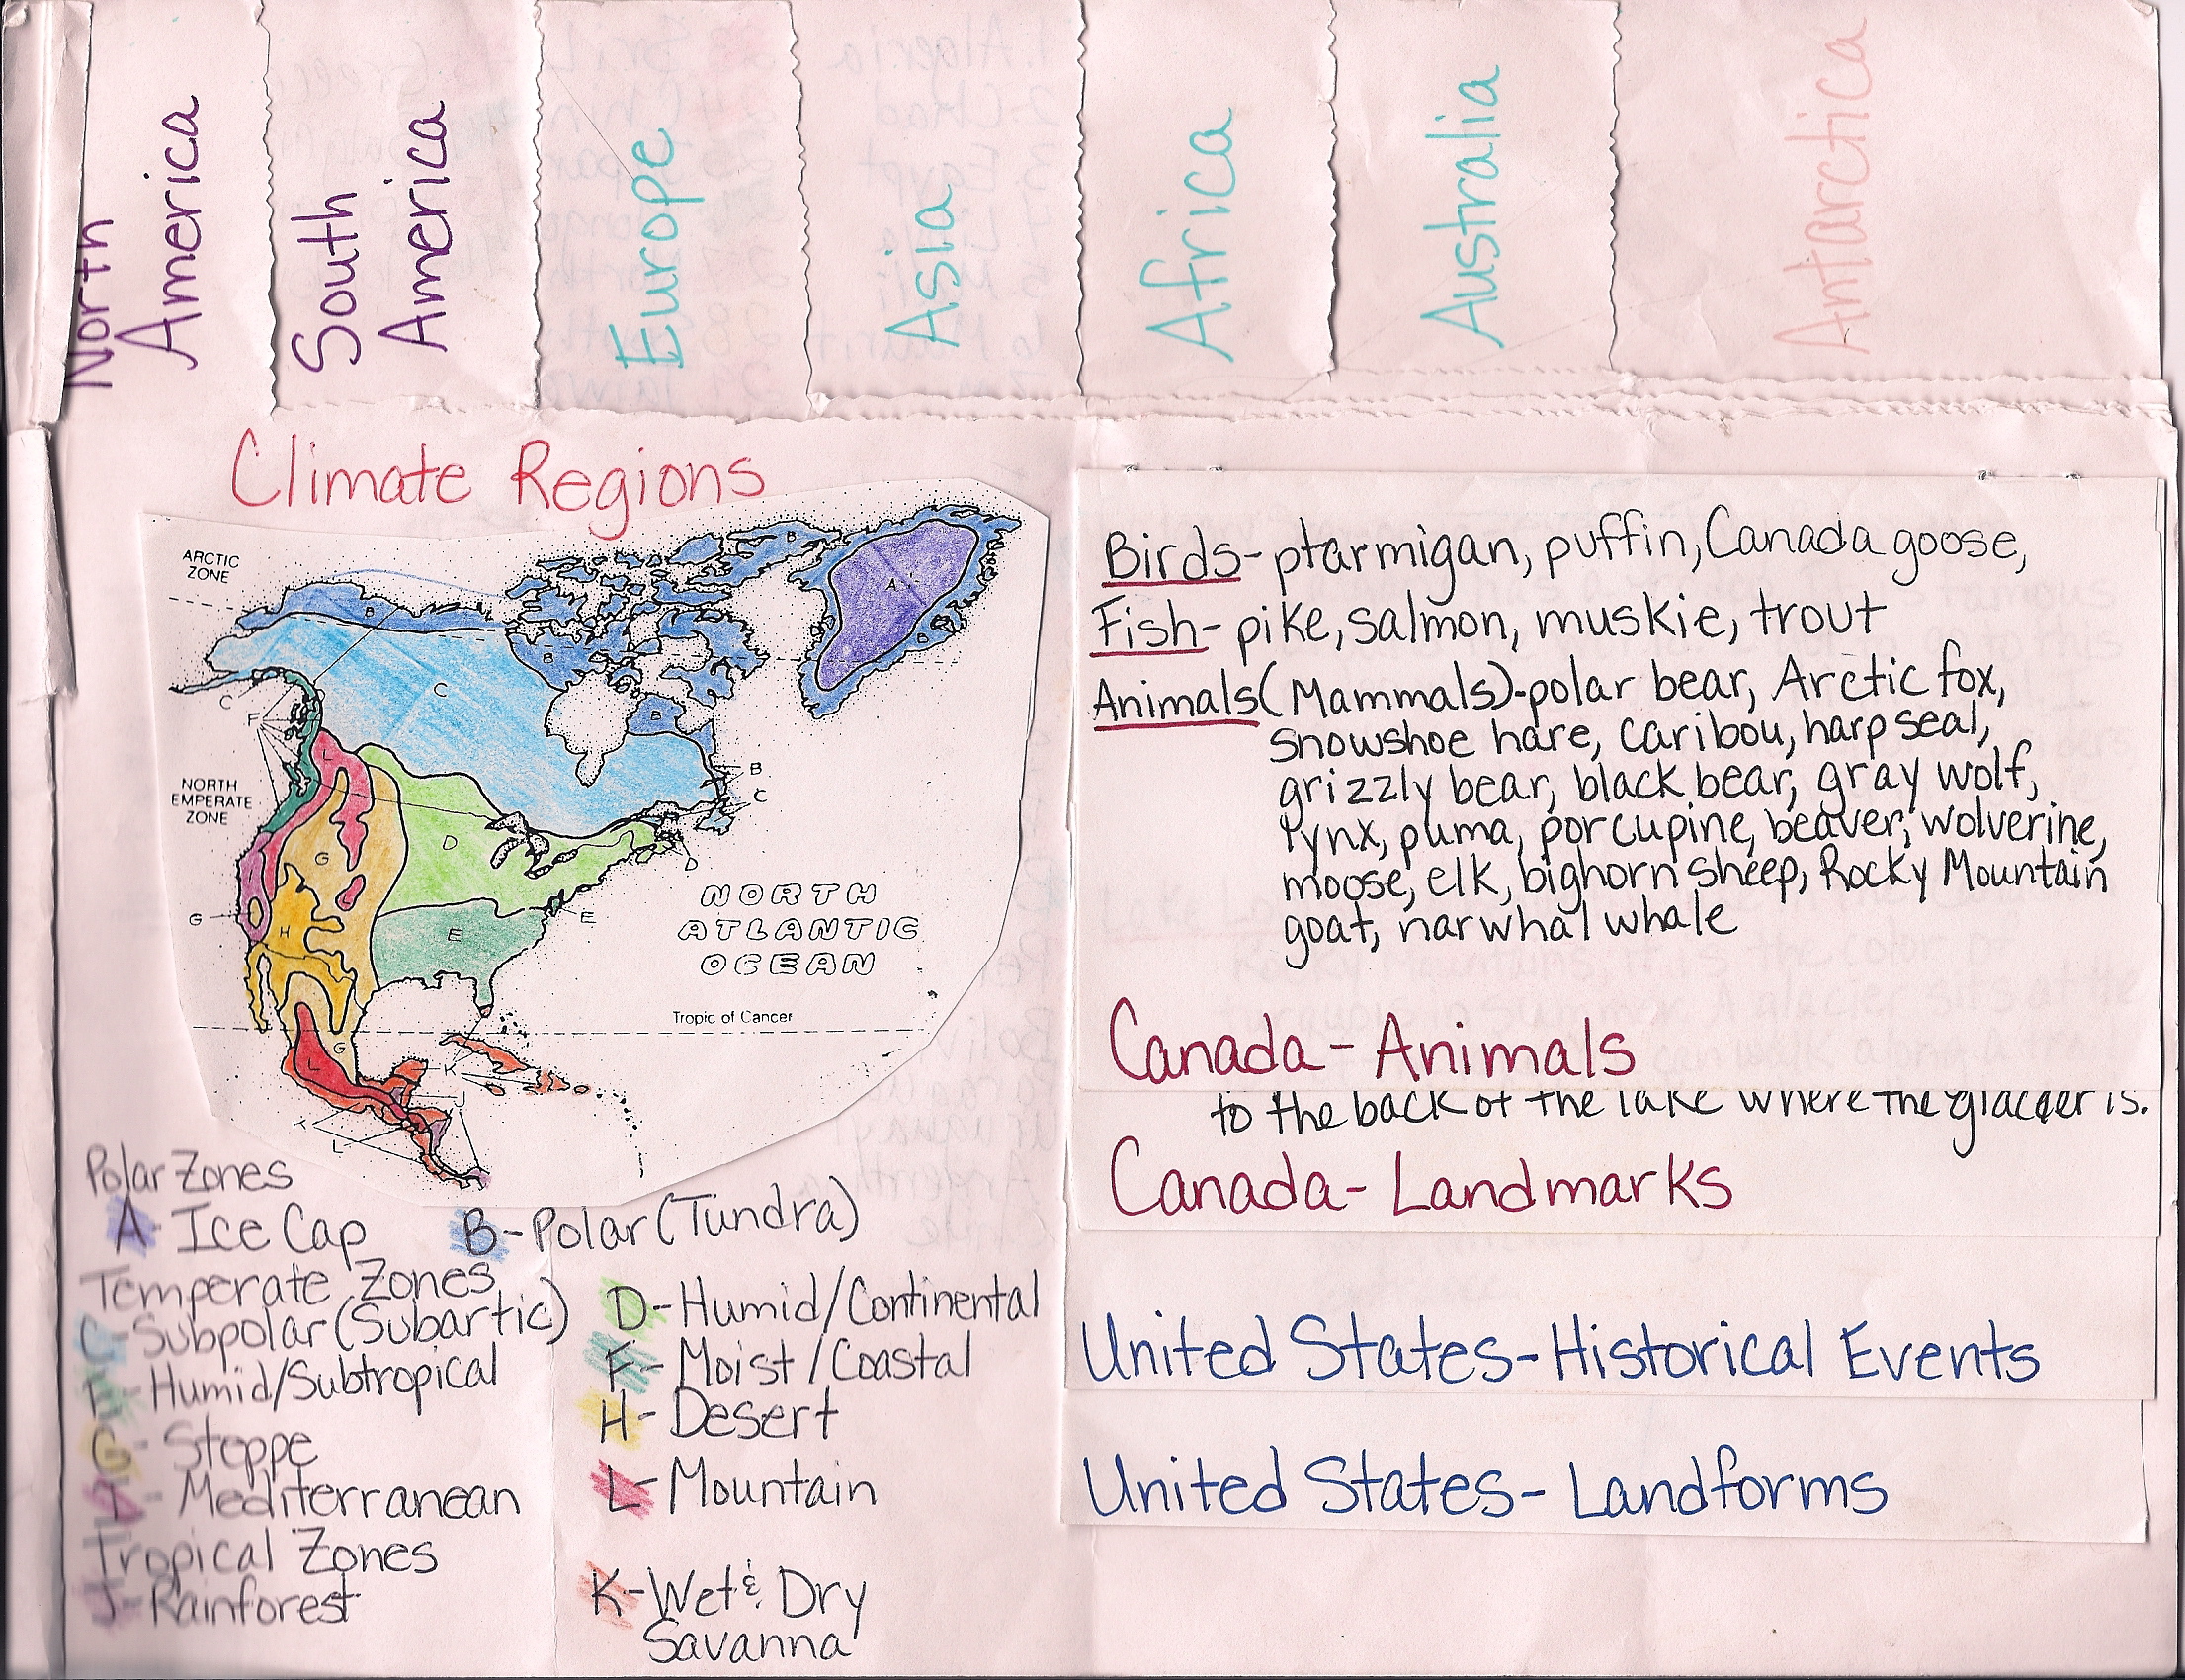 North
America
South
America
Europe
Asia
Africa
Australia
Antarctica
Climate Regions
ARCTIC
ZONE
NORTH
EMPERATE
ZONE
A
B
B
B
B
C
C
F
L
B
C
D
D
G
G
E
E
H
NORTH
ATLANTIC
OCEAN
Tropic of Cancer
G
L
K
J
K
L
Polar Zones
A-Ice Cap
B-Polar (Tundra)
Temperate Zones
C-Subpolar (Subartic)
D-Humid/Continental
E-Humid/Subtropical
F-Moist/Coastal
G-Steppe
H-Desert
I-Mediterranean
L-Mountain
Tropical Zones
J-Rainforest
K-Wet & Dry
Savanna
Birds-ptarmigan, puffin, Canada goose,
Fish-pike, salmon, muskie, trout
Animals (Mammals)-polar bear, Arctic fox,
snowshoe hare, caribou, harp seal,
grizzly bear, black bear, gray wolf,
lynx, puma, porcupine, beaver, wolverine,
moose, elk, bighorn sheep, Rocky Mountain
goat, narwhal whale
Canada-Animals
to the back of the lake where the glacier is.
Canada-Landmarks
United States-Historical Events
United States-Landforms